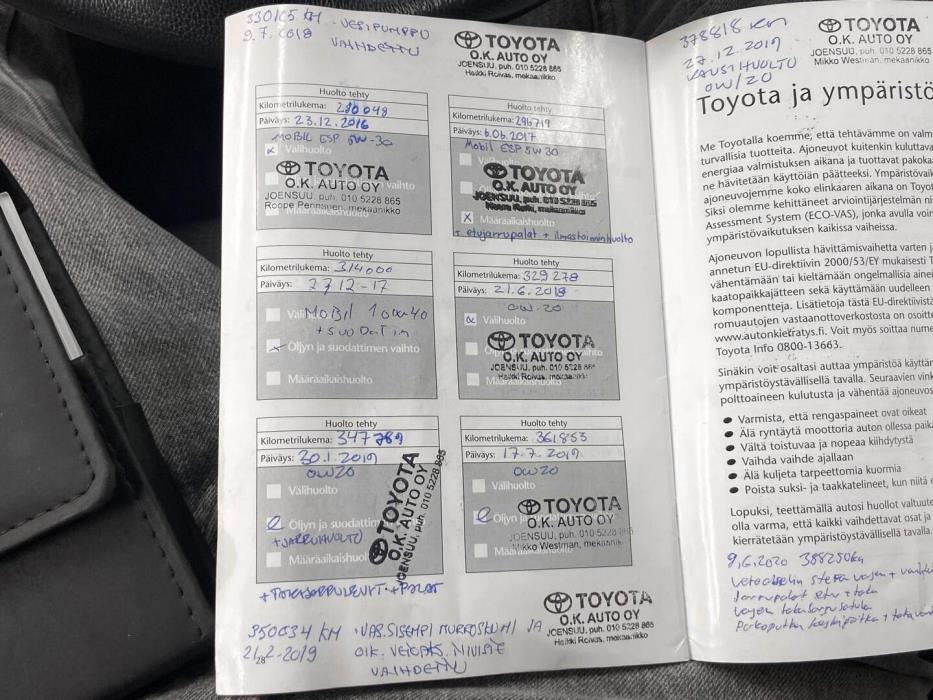 330165 KM · VESIPUMPPU
9.7.2018 VAIHDETTU
TOYOTA
O.K. AUTO OY
JOENSUU, puh. 010 5228 865
Heikki Roivas, mekaanikko
Huolto tehty
Kilometrilukema: 280048
Päiväys: 23.12.2016
MOBIL ESP 5W-30
Välihuolto
TOYOTA
O.K. AUTO OY
JOENSUU, puh. 010 5228 865
Roope Pennanen, mekaanikko
Määräaikaishuolto
Huolto tehty
Kilometrilukema: 296719
Päiväys: 6.06.2017
Mobil ESP 5W30
TOYOTA
O.K. AUTO OY
JOENSUU, puh. 010 5228 865
x Määräaikaishuolto
+ etujarrupalat + ilmastoinninhuolto
Huolto tehty
Kilometrilukema: 314000
Päiväys: 27.12-17
MOBIL 1 0W-40
+ SUODATIN
x Öljyn ja suodattimen vaihto
Määräaikaishuolto
Huolto tehty
Kilometrilukema: 329278
Päiväys: 21.6.2018
0W-20
Välihuolto
TOYOTA
O.K. AUTO OY
JOENSUU, puh. 010 5228 865
Heikki Roivas, mekaanikko
Huolto tehty
Kilometrilukema: 347789
Päiväys: 30.1.2019
0W20
Välihuolto
Öljyn ja suodattim
+JARRUHUOLTO
Määräaikaishuol
TOYOTA
O.K. AUTO OY
JOENSUU, puh. 010 5228 865
+TAKAJARRULEVYT + PALAT
Huolto tehty
Kilometrilukema: 361853
Päiväys: 17.7.2019
0W20
Välihuolto
Öljyn
TOYOTA
O.K. AUTO OY
JOENSUU, puh. 010 5228 865
Mikko Westman, mekaanik
350034 KM · VAS. SISEMPI MURROSKUMI JA
21.2-2019 OIK. VETOAKS. NIVELE
28
VAIHDETTU
TOYOTA
O.K. AUTO OY
JOENSUU, puh. 010 5228 865
Heikki Roivas, mekaanikko
378818 km
27.12.2019
KAUSIHUOLTO
0W/20
TOYOTA
O.K. AUTO OY
JOENSUU, puh. 010 5228 865
Mikko Westman, mekaanikko
Toyota ja ympäristö
Me Toyotalla koemme, että tehtävämme on valm
turvallisia tuotteita. Ajoneuvot kuitenkin kuluttava
energiaa valmistuksen aikana ja tuottavat pakoka
ne hävitetään käyttöiän päätteeksi. Ympäristövaik
ajoneuvojemme koko elinkaaren aikana on Toyot
Siksi olemme kehittäneet arviointijärjestelmän ni
Assessment System (ECO-VAS), jonka avulla voin
ympäristövaikutuksen kaikissa vaiheissa.
Ajoneuvon lopullista hävittämisvaihetta varten j
annetun EU-direktiivin 2000/53/EY mukaisesti T
vähentämään tai kieltämään ongelmallisia ainei
kaatopaikkajätteen sekä käyttämään uudelleen
komponentteja. Lisätietoja tästä EU-direktiivistä
romuautojen vastaanottoverkostosta on osoitte
www.autonkierratys.fi. Voit myös soittaa nume
Toyota Info 0800-13663.
Sinäkin voit osaltasi auttaa ympäristöä käyttän
ympäristöystävällisellä tavalla. Seuraavien vink
polttoaineen kulutusta ja vähentää ajoneuvos
● Varmista, että rengaspaineet ovat oikeat
● Älä ryntäytä moottoria auton ollessa paik
● Vältä toistuvaa ja nopeaa kiihdytystä
● Vaihda vaihde ajallaan
● Älä kuljeta tarpeettomia kuormia
● Poista suksi- ja taakkatelineet, kun niitä e
Lopuksi, teettämällä autosi huollot valtuute
olla varma, että kaikki vaihdettavat osat ja
kierrätetään ympäristöystävällisellä tavalla.
9.6.2020 388250km
Jarrupalat etu + taka